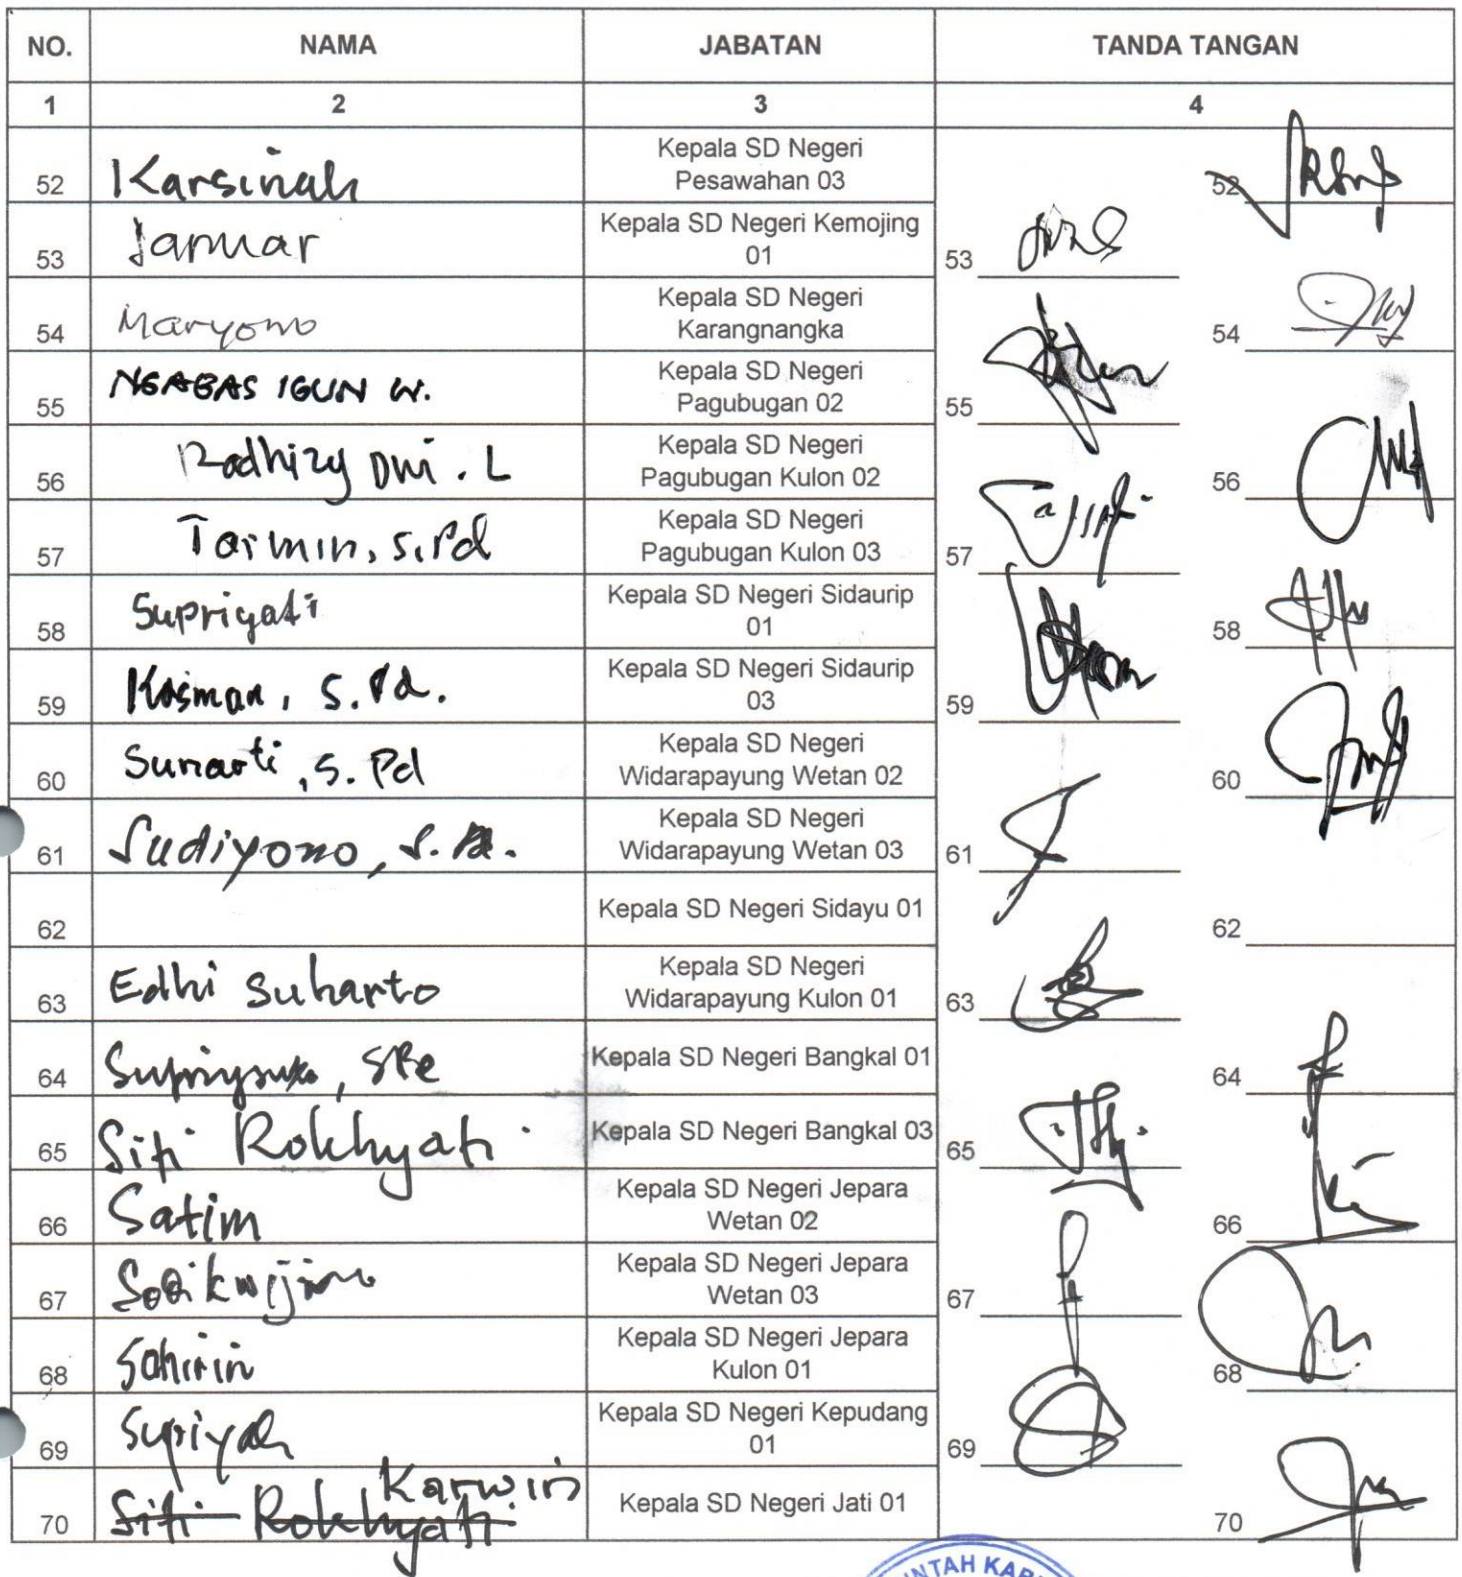 NO. NAMA JABATAN TANDA TANGAN
1 2 3 4
52 Karsinah Kepala SD Negeri Pesawahan 03 52
53 Januar Kepala SD Negeri Kemojing 01 53
54 Maryono Kepala SD Negeri Karangnangka 54
55 NGABAS IGUN W. Kepala SD Negeri Pagubugan 02 55
56 Radhizy Dwi . L Kepala SD Negeri Pagubugan Kulon 02 56
57 Tarmin, S.Pd Kepala SD Negeri Pagubugan Kulon 03 57
58 Supriyati Kepala SD Negeri Sidaurip 01 58
59 Kasman, S.Pd. Kepala SD Negeri Sidaurip 03 59
60 Sunarti, S.Pd Kepala SD Negeri Widarapayung Wetan 02 60
61 Sudiyono, S.Pd. Kepala SD Negeri Widarapayung Wetan 03 61
62 Kepala SD Negeri Sidayu 01 62
63 Edhi Suharto Kepala SD Negeri Widarapayung Kulon 01 63
64 Kepala SD Negeri Bangkal 01 64
65 Siti Rokhyati Kepala SD Negeri Bangkal 03 65
66 Satim Kepala SD Negeri Jepara Wetan 02 66
67 Kepala SD Negeri Jepara Wetan 03 67
68 Sahirin Kepala SD Negeri Jepara Kulon 01 68
69 Supiyah Kepala SD Negeri Kepudang 01 69
70 Siti Rokhyati Karwin Kepala SD Negeri Jati 01 70